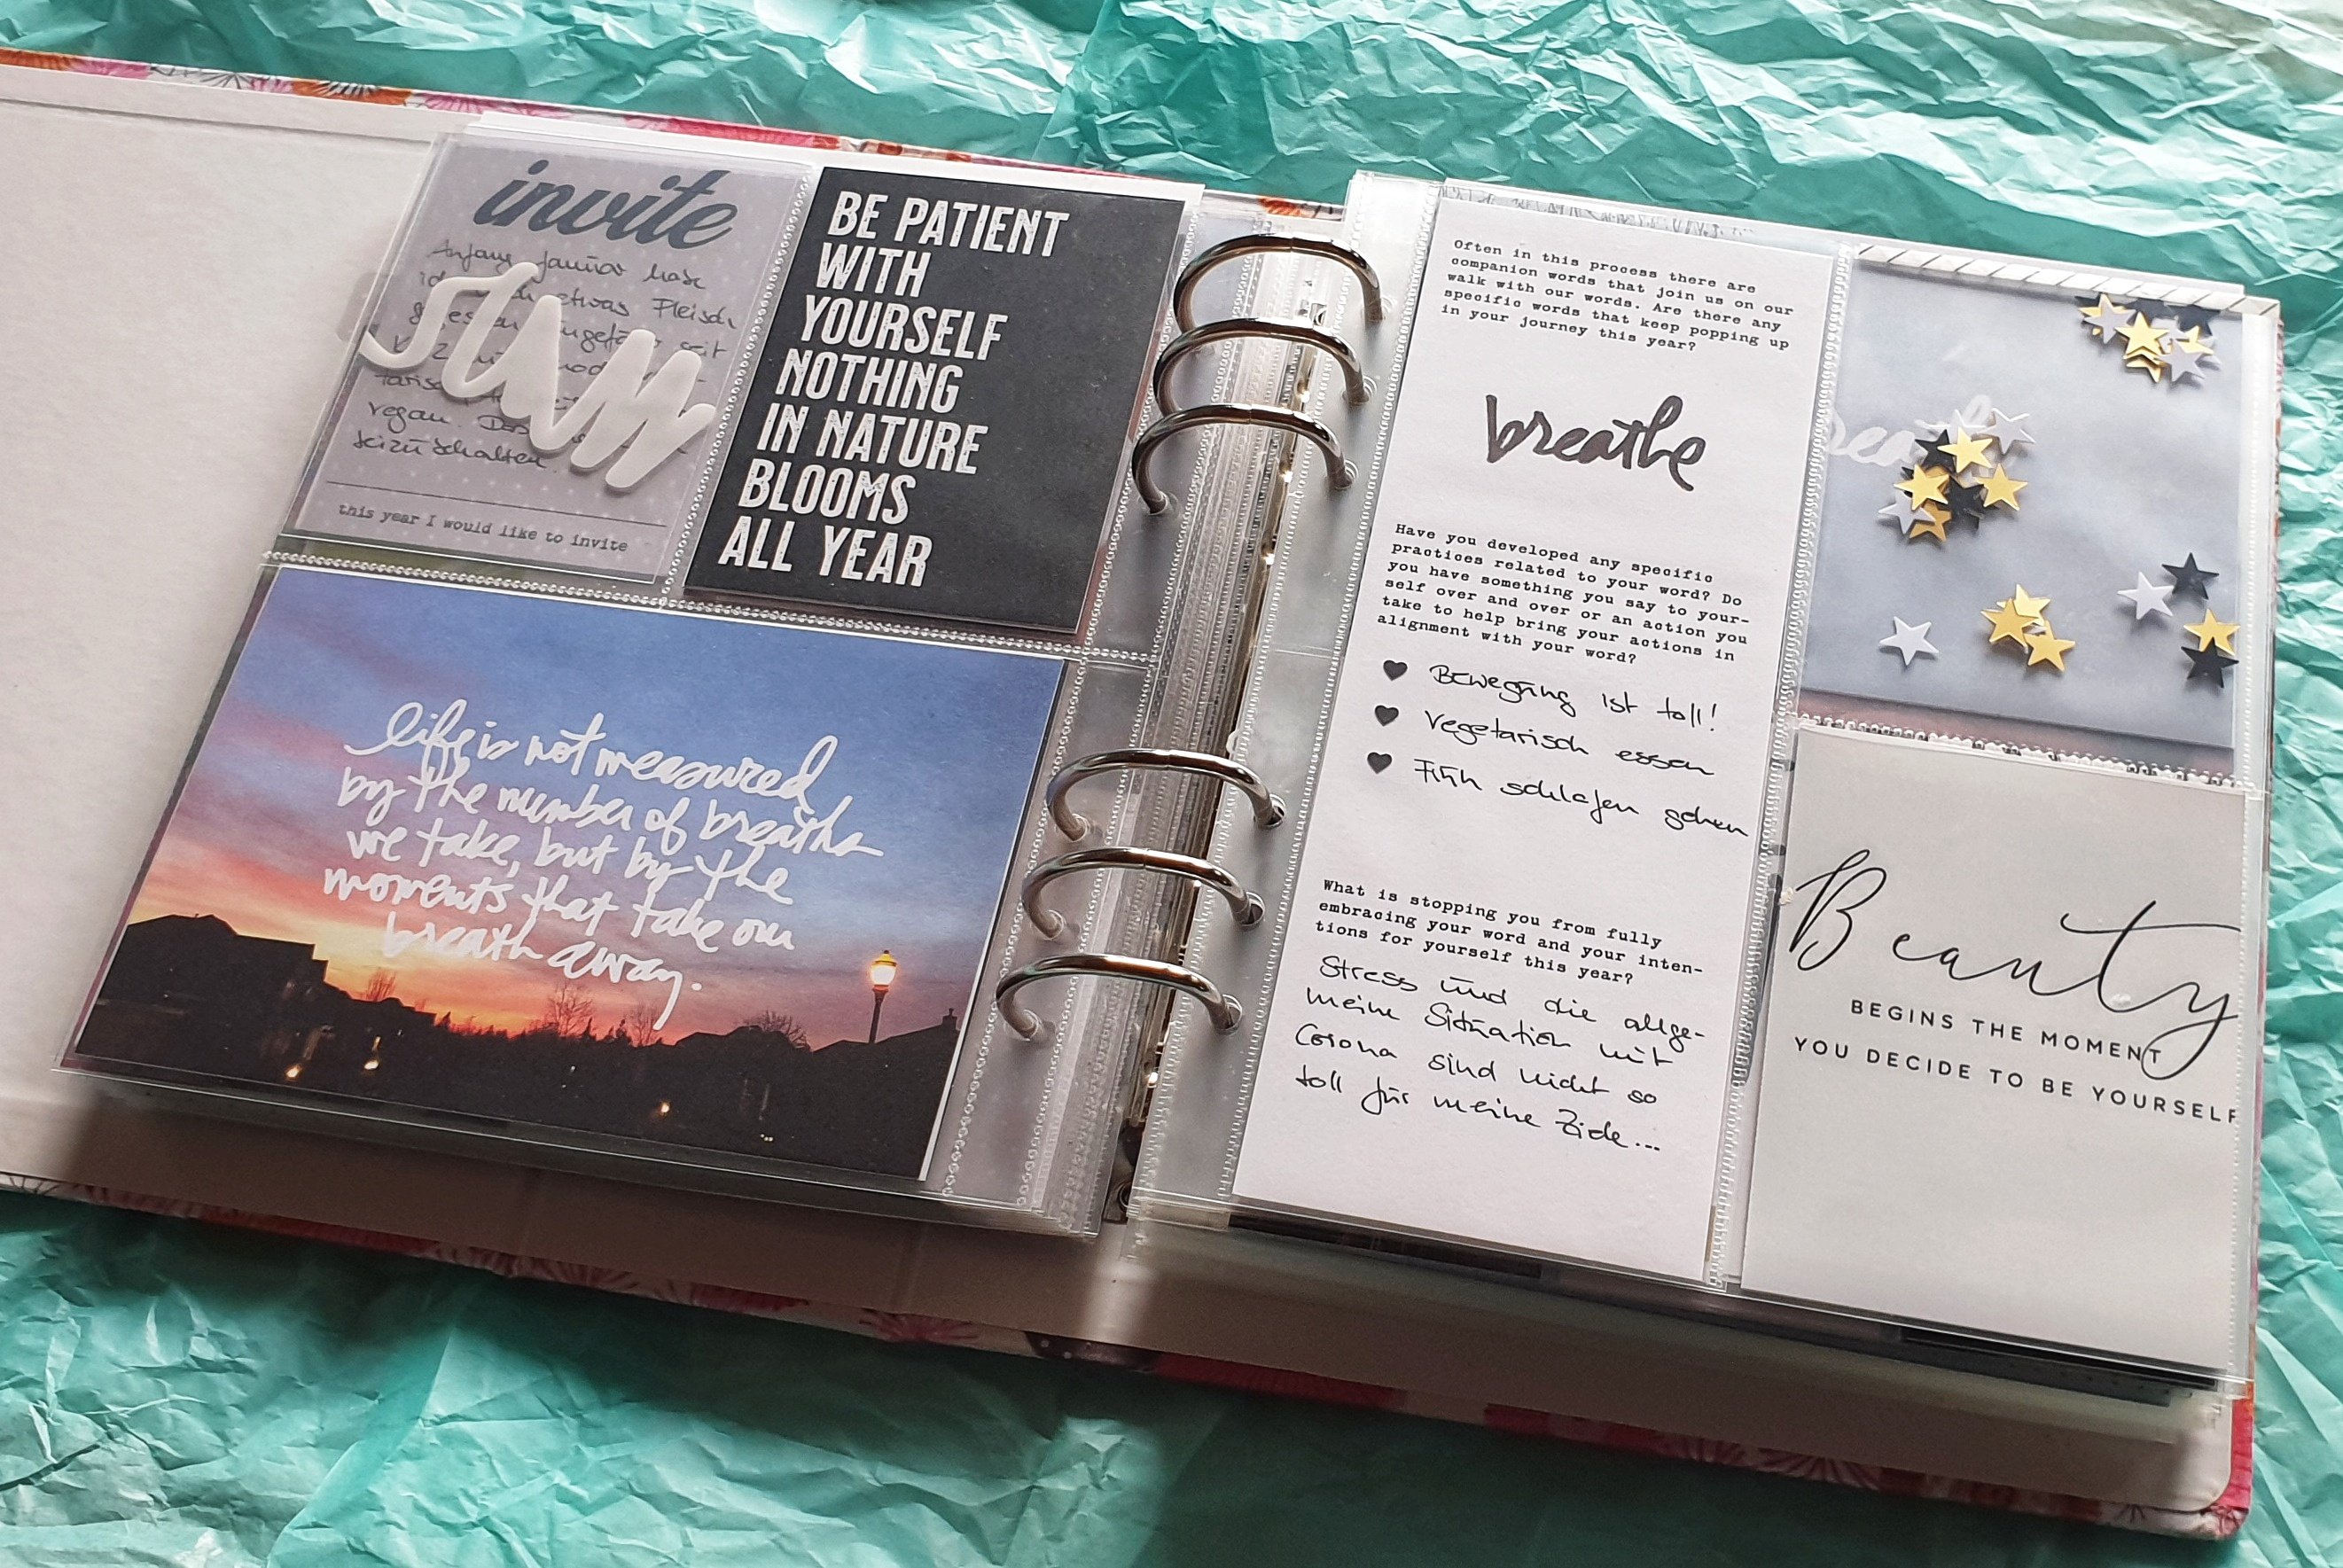 invite
Anfang Januar habe
etwas Fleisch
seit
vegan.
this year I would like to invite
BE PATIENT
WITH
YOURSELF
NOTHING
IN NATURE
BLOOMS
ALL YEAR
life is not measured
by the number of breaths
we take, but by the
moments that take our
breath away.
Often in this process there are
companion words that join us on our
walk with our words. Are there any
specific words that keep popping up
in your journey this year?
breathe
Have you developed any specific
practices related to your word? Do
you have something you say to your-
self over and over or an action you
take to help bring your actions in
alignment with your word?
Bewegung ist toll!
Vegetarisch essen
Früh schlafen gehen
What is stopping you from fully
embracing your word and your inten-
tions for yourself this year?
Stress und die allge-
meine Situation mit
Corona sind nicht so
toll für meine Ziele...
Beauty
BEGINS THE MOMENT
YOU DECIDE TO BE YOURSELF